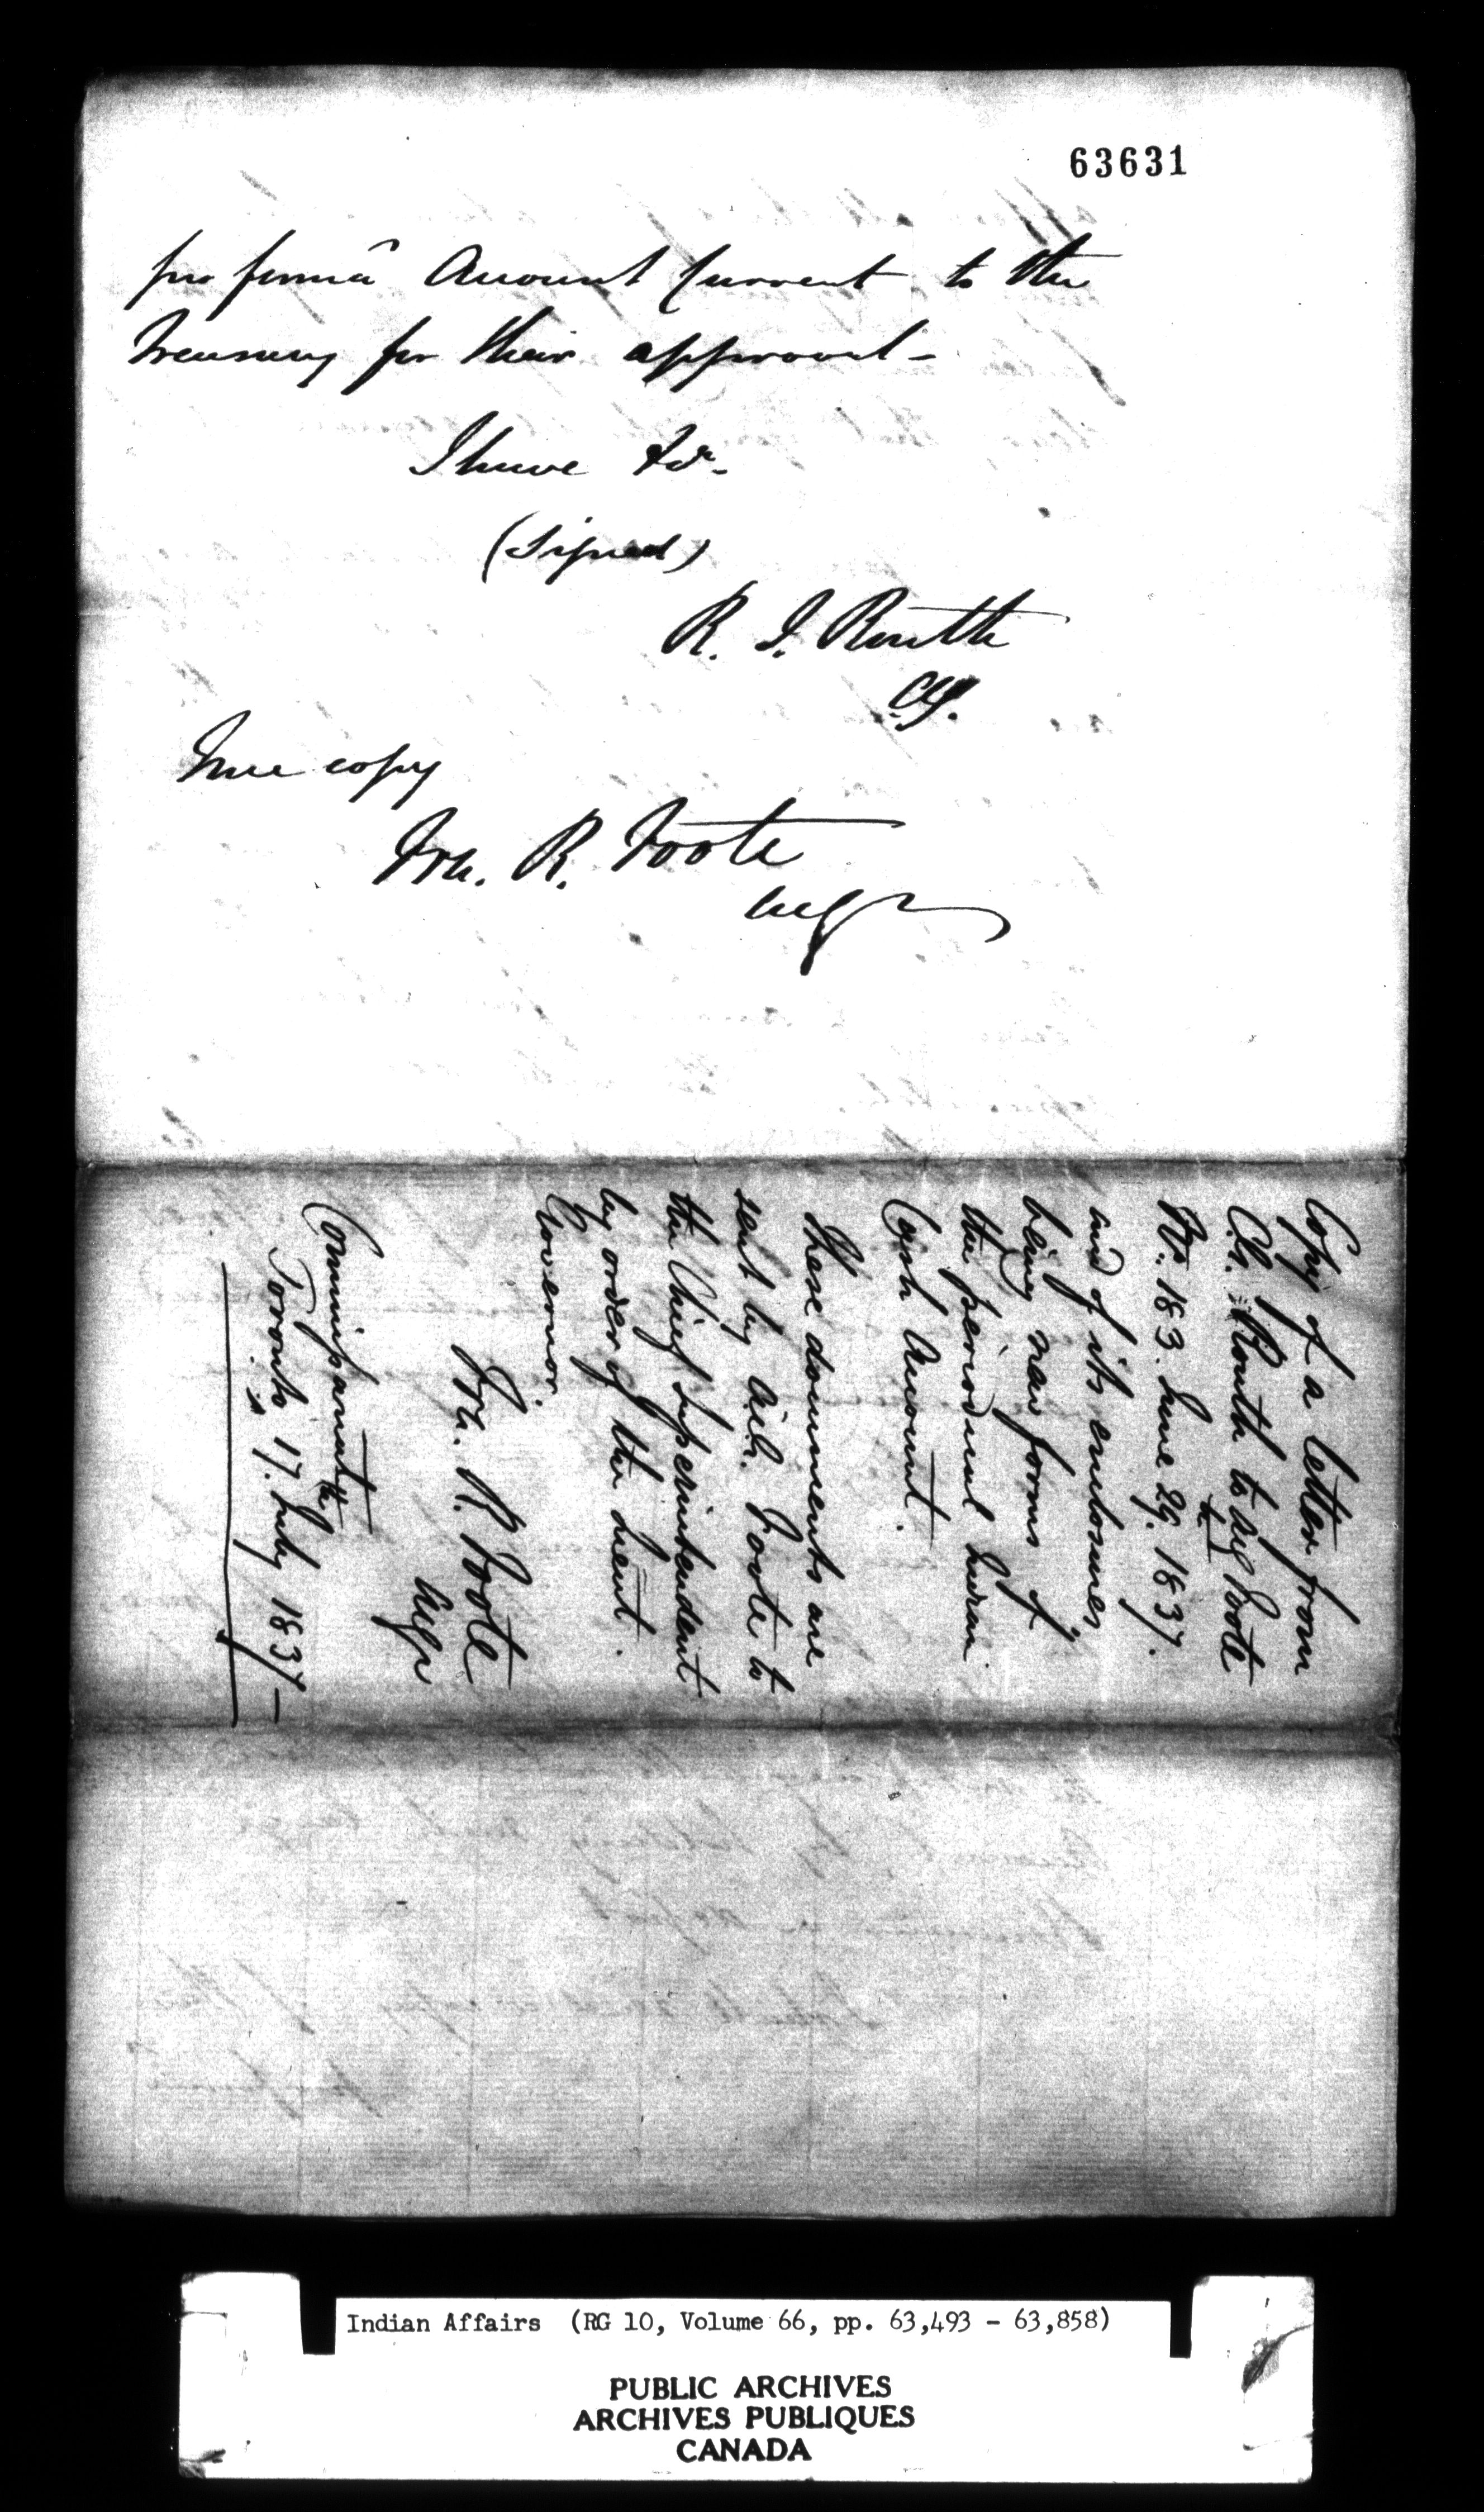 63631
pro formâ Account Current to the
Treasury for their approval -
I have &c.
(Signed)
R. I. Routh
CG.
True copy
Wm. R. Foote
Copy of a letter from
C.G. Routh to ACG Foote
No. 183. June 29. 1837.
and of its enclosures
being new forms of
the periodical Indian
Cash Account.
These documents are
sent by Foote to
the Chief Superintendent
by order of the Lieut.
Governor.
Wm. R. Foote
Commissariat
Toronto 17th July 1837 -
Indian Affairs (RG 10, Volume 66, pp. 63,493 - 63,858)
PUBLIC ARCHIVES
ARCHIVES PUBLIQUES
CANADA